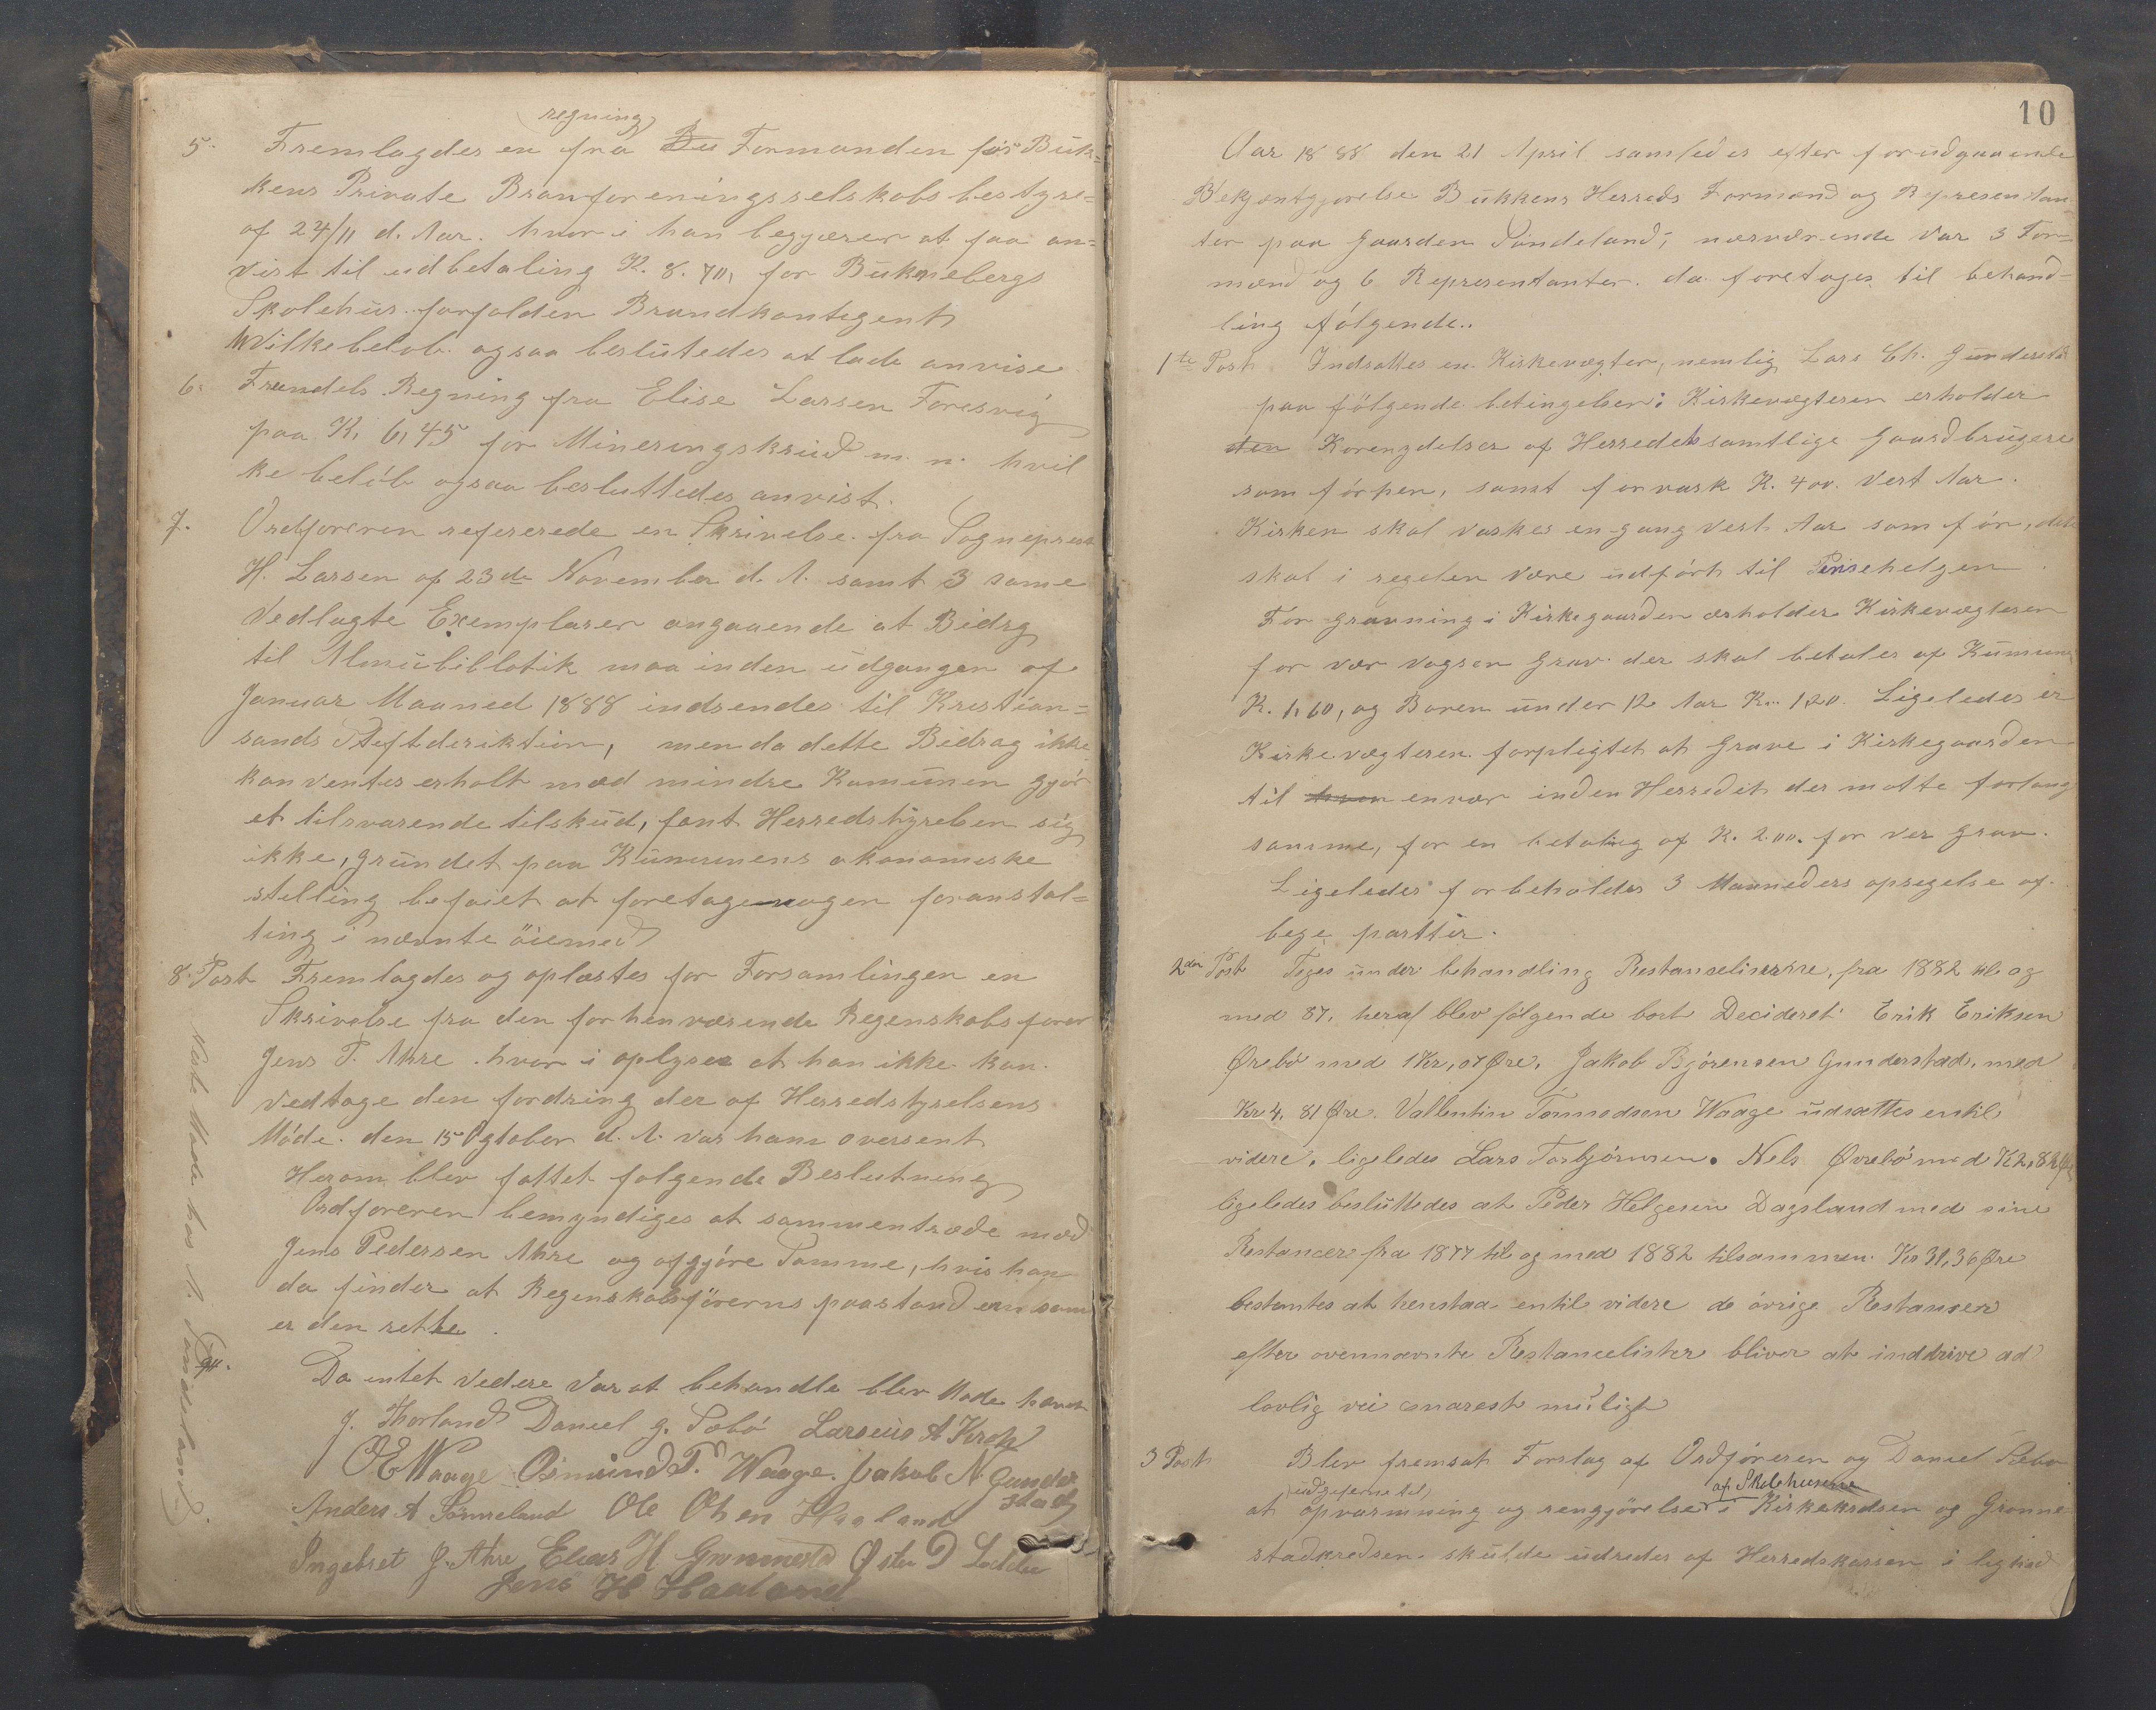 regning
5. Fremlagdes en fra Formanden for Buk-
kens Private Branforeningsselskabs bestyre=
af 24/11 d. Aar. hvor i han begjærer at faa an=
vist til udbetaling K. 8.70, for Buknebergs
Skolehus forfalden Brandkontegent
hvilkebelöb ogsaa beslutedes at lade anvise
6. Frendels Regning fra Elise Larsen Foresvig
paa K. 6,45 for Mineringskrud m. n. hvil
ke belöb ogsaa besluttedes anvist.
7. Ordføreren refererede en Skrivelse fra Sogneprest
H. Larsen af 23de November d. A. samt 3 same
Vedlagte Exemplarer angaaende at Bidrg
til Almubiblotik maa inden udgangen af
Januar Maaned 1888 indsendes til Kristian=
sands Steftderiktiun, men da dette Bidrag ikke
kan ventes erholt mæd mindre Kamunen gjör
et tilsvarende tilskud, fant Herredstyrelsen sig
ikke, grundet paa Kumunens akonomiske
stelling beføiet at foretage nogen foranstal=
ting i nævnte öiemed
8. Post Fremlagdes og oplæstes for Forsamlingen en
Skrivelse fra den forhenværende Regenskabsförer
Jens P. Ahre hvor i oplyser at han ikke kan
vedtage den fordring der af Herredstyrelsens
Möde den 15 Ogtober d. A. var ham oversent
Herom blev fattet følgende Beslutning
Ordføreren bemyndiges at sammentræde mæd
Jens Pedersen Ahre og afgjöre Samme, hvis han
da finder at Regenskabsförerns paastand er som
er den rette.
Da intet videre var at behandle blev Möde hævet
J. Thorland Daniel G. Søbö Larseus A Krok
O E Waage Osmund T. Waage. Jakob N Gunder
stad
Anders A Sönneland Ole Olsen Haaland
Ingebret J. Ahre Elias H Grønnestd Øster D Lodden
Jens H Haaland
Neste Möde hos A. Sönderland
10
Aar 1888 den 21 April samledes efter forudgaaende
Bekjentgjørelse Bukkens Herreds Formænd og Represendan
ter paa Gaarden Söndeland; nærværende var 3 For=
mænd og 6 Representanter. da foretages til behand=
ling følgende..
1te Post Indsattes en Kirkevægter, nemlig Lars Ch. Gunderstd
paa følgende betingelser: Kirkevægteren erholder
den Korenydelser af Herredets samtlige Gaardbrugere
som förhen, samt for vask K. 4 00. vert Aar.
Kirken skal vaskes en gang vert Aar som før, dete
skal i regelen være udfört til Pinsehelgen.
For gravning i Kirkegaarden ærholder Kirkevægteren
for vær vogsen Grav der skal betales af Kumune
K. 1,60, og Boren under 12 Aar K. 1 20. Ligeledes er
Kirkevægteren forpligtet at Grave i Kirkegaarden
til hver envær inden Herredit der matte forlang
samme, for en betaling af K. 2,00. for ver Grav.
Ligeledes forbeholdes 3 Maaneders opsegelse af
bege parttir.
2den Post Toges under behandling Restancelisterne, fra 1882 til og
med 87, heraf blev følgende bort Decideret: Erik Eriksen
Ørebö med 1Kr, 07 Øre, Jakob Björensen Gunderstad, med
Kr 4, 81 Øre. Vallentin Tormodsen Waage udsættes entil
videre, ligeledes Lars Torbjörnsen. Nels Øvrebö med K2,82 Øre
ligeledes besluttedes at Peder Helgesen Dagsland med sine
Restancer fra 1877 til og med 1882 tilsammen Kr 31,36 Øre
bestemtes at henstaa entil videre de övrige Restanser
efter ovennævnte Restancelister bliver at inddrive ad
lovlig vei snarest muligt
3 Post Blev fremsat Forslag af Ordføreren og Daniel Søbø
udgeferne til af Skolehusene
at opvarmning og rengjörelse i Kirkekredsen og Grønne
stadkredsen skulde udredes af Herredskassen i ligheð